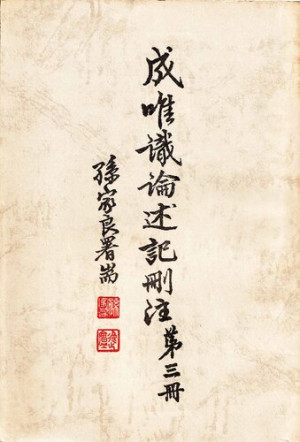 成唯識論述記刪注 第三冊
孫家良署耑